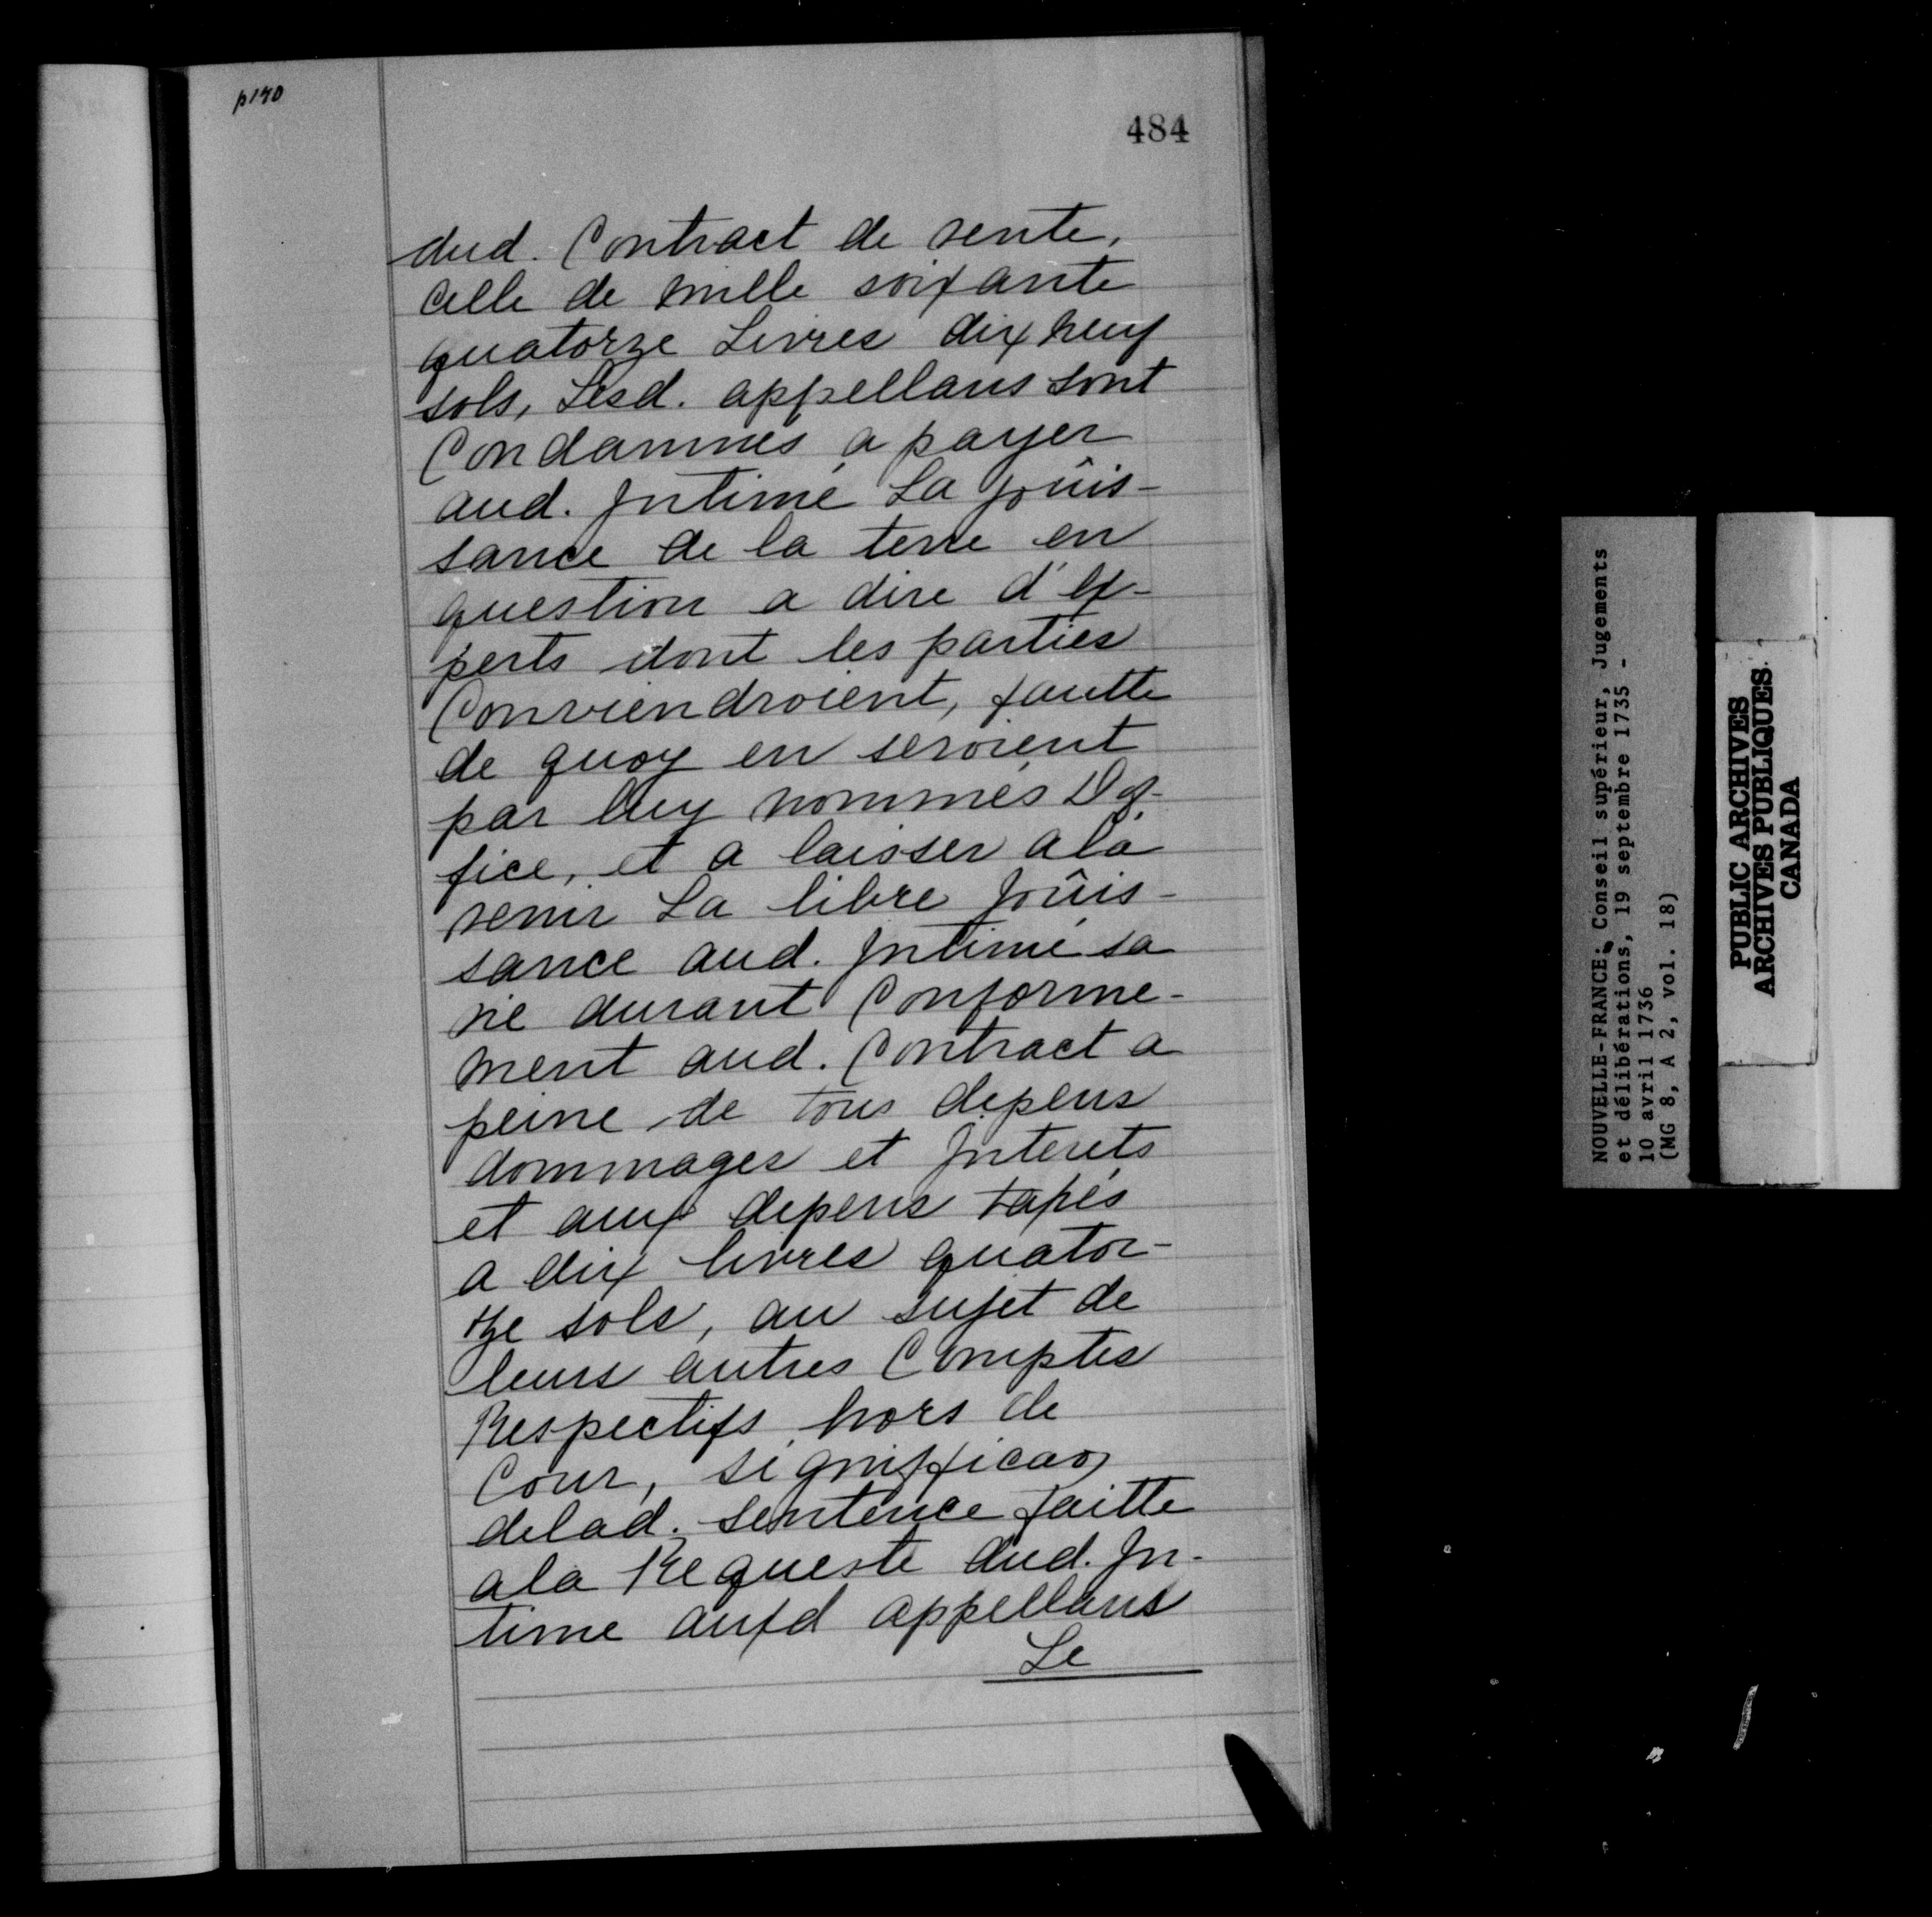 p170
484
dud. Contract de vente,
Celle de mille soixante
quatorze Livres dix neuf
sols, Lesd. appellans sont
Condamnés a payer
aud. Jntimé La joüis-
sance de la terre en
question a dire d'Ex-
perts dont les parties
Conviendroient, fautte
de quoy en seroient
par luy nommés Dof-
fice, et a laisser ala
venir La libre Joüis-
sance aud. Jntimé sa
vie durant Conforme-
ment aud. Contract a
peine de tous depens
dommages et Jnterets
et aux depens taxés
a dix livres quator-
ze sols, au sujet de
leurs autres Comptes
Respectifs hors de
Cour, significaõn
delad. sentence faitte
ala Requeste dud. Jn-
time auxd appellans
Le
NOUVELLE-FRANCE: Conseil supérieur, Jugements
et délibérations, 19 septembre 1735 -
10 avril 1736
(MG 8, A 2, vol. 18)
PUBLIC ARCHIVES
ARCHIVES PUBLIQUES
CANADA